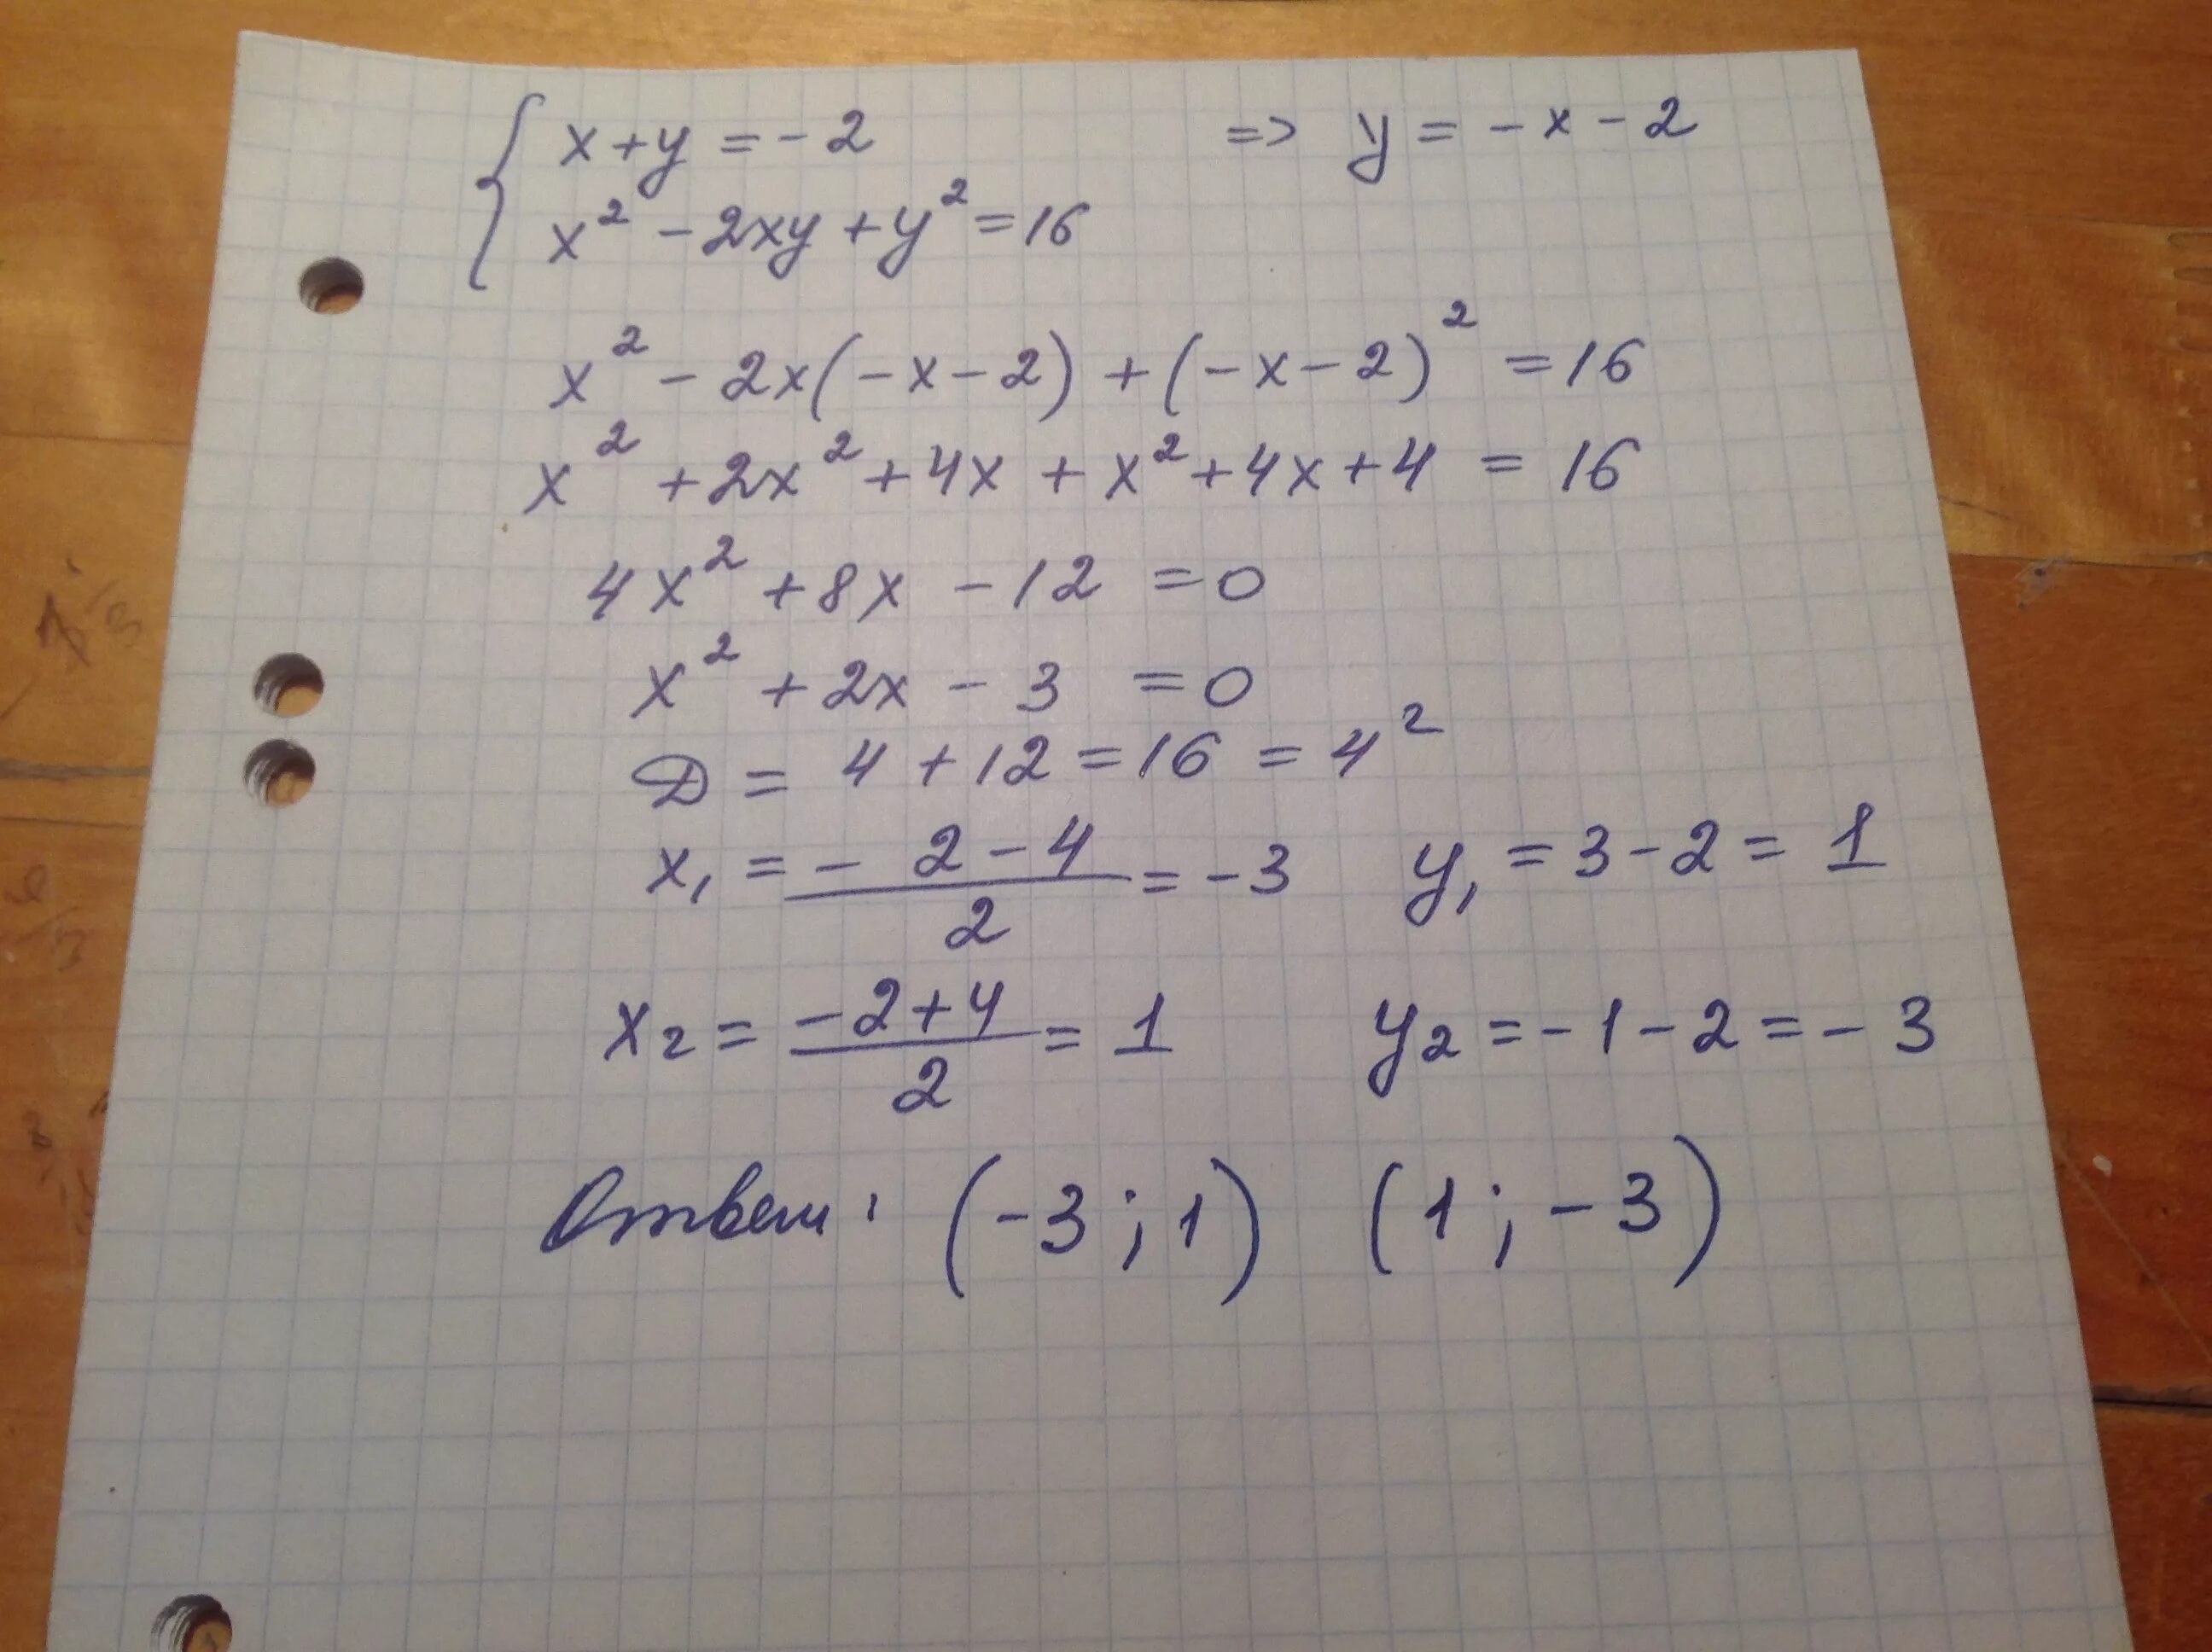 { x + y = -2 => y = -x - 2
x² - 2xy + y² = 16
x² - 2x(-x-2) + (-x-2)² = 16
x² + 2x² + 4x + x² + 4x + 4 = 16
4x² + 8x - 12 = 0
x² + 2x - 3 = 0
D = 4 + 12 = 16 = 4²
x₁ = (-2-4)/2 = -3 y₁ = 3 - 2 = 1
x₂ = (-2+4)/2 = 1 y₂ = -1 - 2 = -3
Ответ: (-3; 1) (1; -3)